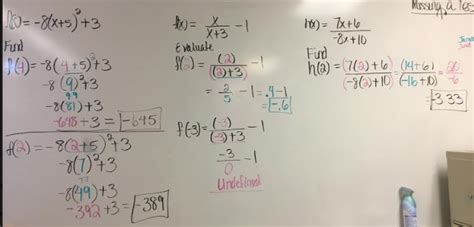 f(x) = -8(x+5)²+3
Find
f(4) = -8(4+5)²+3
-8(9)²+3
9·9
-8(81)+3
-648+3 = -645
f(2) = -8(2+5)²+3
-8(7)²+3
-8(49)+3
-392+3 = -389
f(x) = x/(x+3) - 1
Evaluate
f(2) = (2)/((2)+3) - 1
= 2/5 - 1 = .4-1
= -.6
f(-3) = (-3)/((-3)+3) - 1
-3/0 - 1
Undefined
h(x) = (7x+6)/(-8x+10)
Find
h(2) = (7(2)+6)/(-8(2)+10) = (14+6)/(-16+10) = 20/-6
= -3.33
Missing a Tes